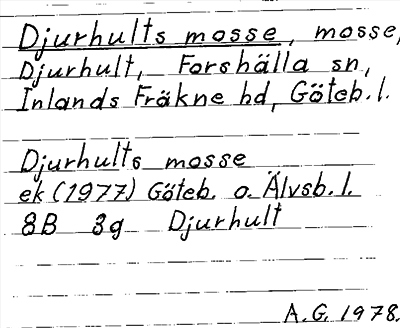 Djurhults mosse, mosse,
Djurhult, Forshälla sn,
Inlands Fräkne hd, Göteb. l.
Djurhults mosse
ek (1977) Göteb. o. Älvsb. l.
8B 3g Djurhult
A.G. 1978.